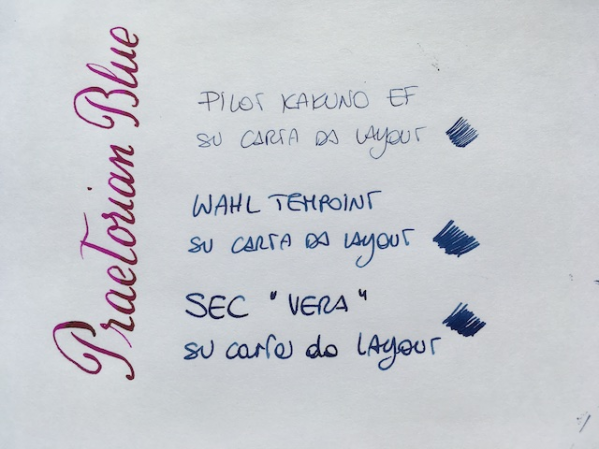 Praetorian Blue
PILOT KAKUNO EF
SU CARTA DA LAYOUT
WAHL TEMPOINT
SU CARTA DA LAYOUT
SEC "VERA"
SU carta da LAYOUT